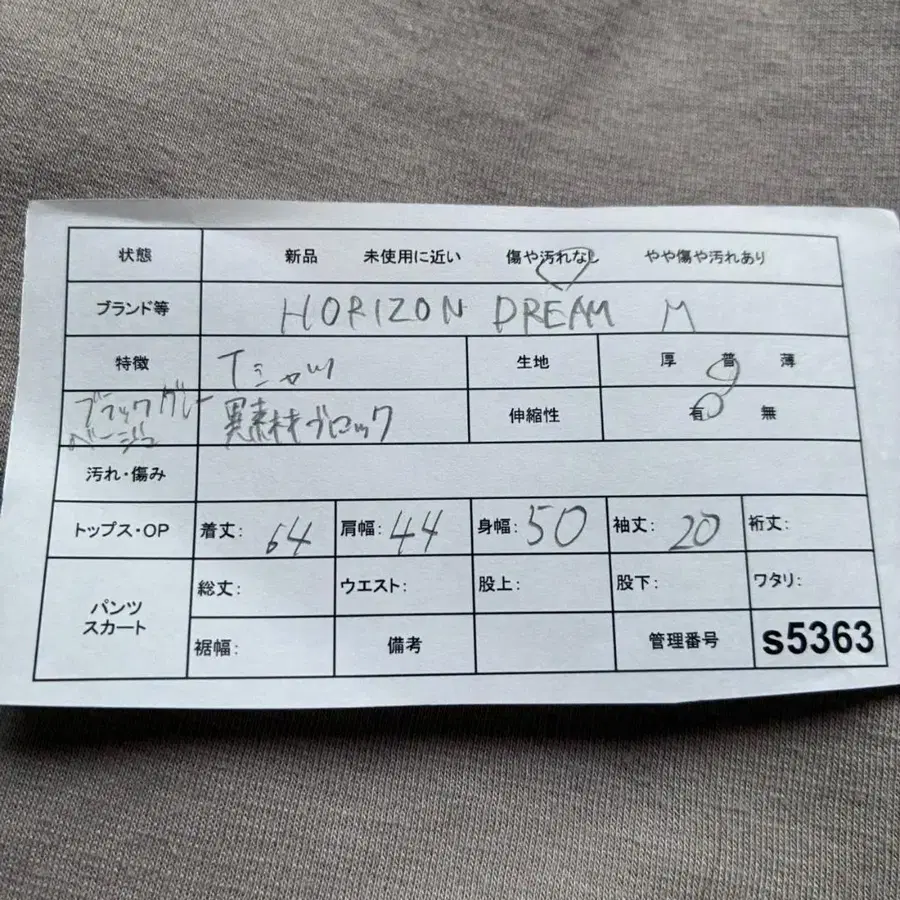 状態 新品 未使用に近い 傷や汚れなし やや傷や汚れあり
ブランド等 HORIZON DREAM M
特徴 Tシャツ 生地 厚 普 薄
ブラック グレー 異素材ブロック 伸縮性 有 無
ベージュ
汚れ・傷み
トップス・OP 着丈: 64 肩幅: 44 身幅: 50 袖丈: 20 裄丈:
パンツ 総丈: ウエスト: 股上: 股下: ワタリ:
スカート 裾幅: 備考 管理番号 s5363